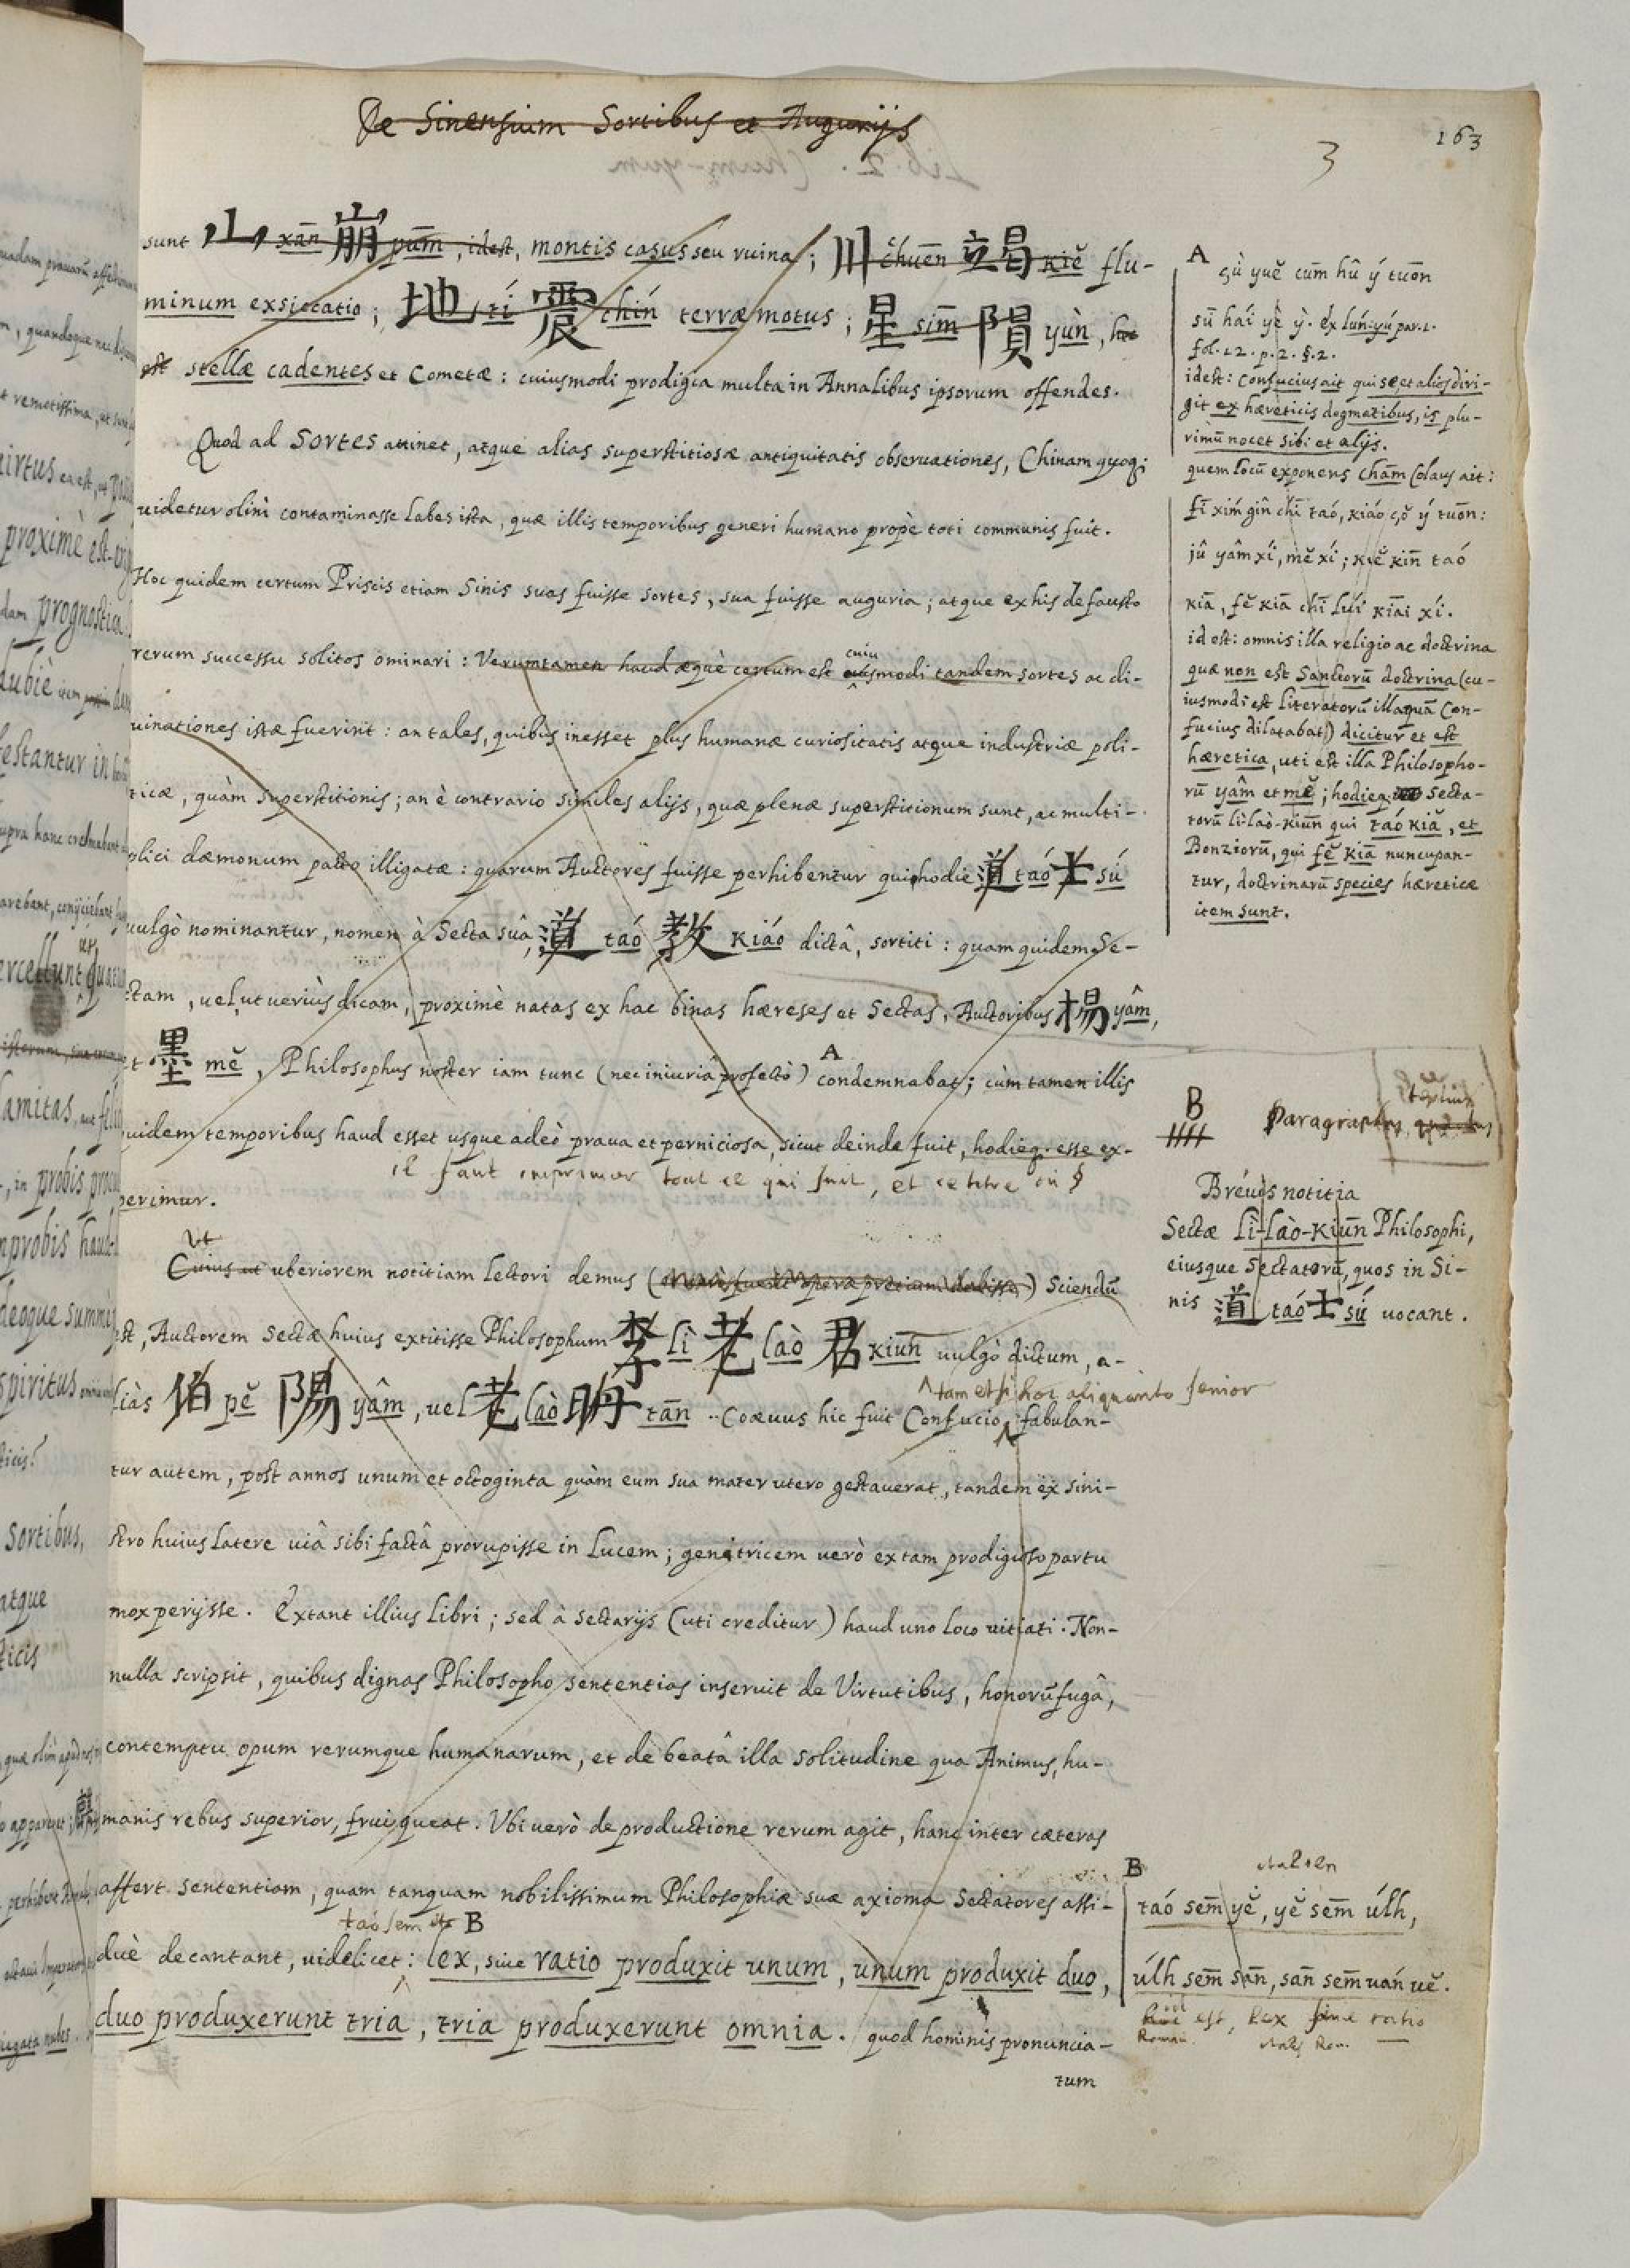 De Sinensium Sortibus et Augurijs
163
3
sunt 山 xān 崩 pūm, idest, montis casus seu ruina; 川 chuēn 竭 kiĕ flu-
minum exsiccatio; 地 tí 震 chín terræ motus; 星 sīm 隕 yùn, hoc
est stellæ cadentes et Cometæ: cuiusmodi prodigia multa in Annalibus ipsorum offendes.
Quod ad SORTES attinet, atque alias superstitiosæ antiquitatis obseruationes, Chinam quoq;
uidetur olim contaminasse labes ista, quæ illis temporibus generi humano propè toti communis fuit.
Hoc quidem certum Priscis etiam Sinis suas fuisse sortes, sua fuisse auguria; atque ex his de fausto
rerum successu solitos ominari: Verumtamen haud æquè certum est cuiusmodi tandem sortes ac di-
uinationes istæ fuerint: an tales, quibus inesset plus humanæ curiositatis atque industriæ poli-
ticæ, quàm superstitionis; an è contrario similes alijs, quæ plenæ superstitionum sunt, ac multi-
plici dæmonum pacto illigatæ: quarum Auctores fuisse perhibentur qui hodie 道 táo 士 sú
uulgò nominantur, nomen à Secta suâ, 道 táo 教 kiáo dictâ, sortiti: quam quidem Se-
ctam, uel, ut ueriùs dicam, proximè natas ex hac binas hæreses et Sectas, Auctoribus 楊 yâm,
et 墨 mĕ, Philosophus noster iam tunc (nec iniuriâ profectò) A condemnabat; cùm tamen illis
quidem temporibus haud esset usque adeò praua et perniciosa, sicut deinde fuit, hodieq. esse ex-
il faut imprimer tout ce qui suit, et ce titre en §
perimur.
Ut
Cuius ut uberiorem notitiam lectori demus ( opera pretium ) Sciendū
est, Auctorem Sectæ huius extitisse Philosophum 李 lì 老 lào 君 kiūn uulgò dictum, a-
liàs 伯 pĕ 陽 yâm, uel 老 lào 聃 tān. Coæuus hic fuit Confucio, fabulan-
tametsi hoc aliquanto senior
tur autem, post annos unum et octoginta quàm eum sua mater utero gestauerat, tandem ex sini-
stro huius latere uiâ sibi factâ prorupisse in lucem; genitricem uerò ex tam prodigioso partu
mox perijsse. Extant illius libri; sed à sectarijs (uti creditur) haud uno loco uitiati. Non-
nulla scripsit, quibus dignas Philosopho sententias inseruit de Virtutibus, honorū fugâ,
contemptu opum rerumque humanarum, et de beatâ illa solitudine qua Animus, hu-
manis rebus superior, frui queat. Vbi uerò de productione rerum agit, hanc inter cæteras
affert sententiam, quam tanquam nobilissimum Philosophiæ suæ axioma Sectatores assi-
táo sem B
duè decantant, uidelicet: lex, siue ratio produxit unum, unum produxit duo,
duo produxerunt tria, tria produxerunt omnia. quod hominis pronuncia-
tum
A çù yuĕ cūm hû ý tuōn
sū hái yè ỳ. ex lún-yú par. 1.
fol. 12. p. 2. §. 2.
idest: Confucius ait qui se, et alios diri-
git ex hæreticis dogmatibus, is plu-
rimū nocet sibi et alijs.
quem locū exponens Chām Colaus ait:
fī xím gîn chī táo, kiáo çŏ ý tuōn:
jû yâm xí, mĕ xí; kiĕ kīn táo
kiā, fĕ kiā chī lúi kiāi xí.
id est: omnis illa religio ac doctrina
quæ non est Sanctorū doctrina (cu-
iusmodi est literatorū illa quā Con-
fucius dilatabat) dicitur et est
hæretica, uti est illa Philosopho-
rū yâm et mĕ; hodieq. secta-
torū lì-lào-kiūn qui táo kiā, et
Bonziorū, qui fĕ kiā nuncupan-
tur, doctrinarū species hæreticæ
item sunt.
B
Paragraphus
tertius
Breuis notitia
Sectæ lì-lào-kiūn Philosophi,
eiusque Sectatorū, quos in Si-
nis 道 táo 士 sú uocant.
B
táo sēm yĕ, yĕ sēm úlh,
úlh sēm sān, sān sēm uán uĕ.
id est, Lex siue ratio